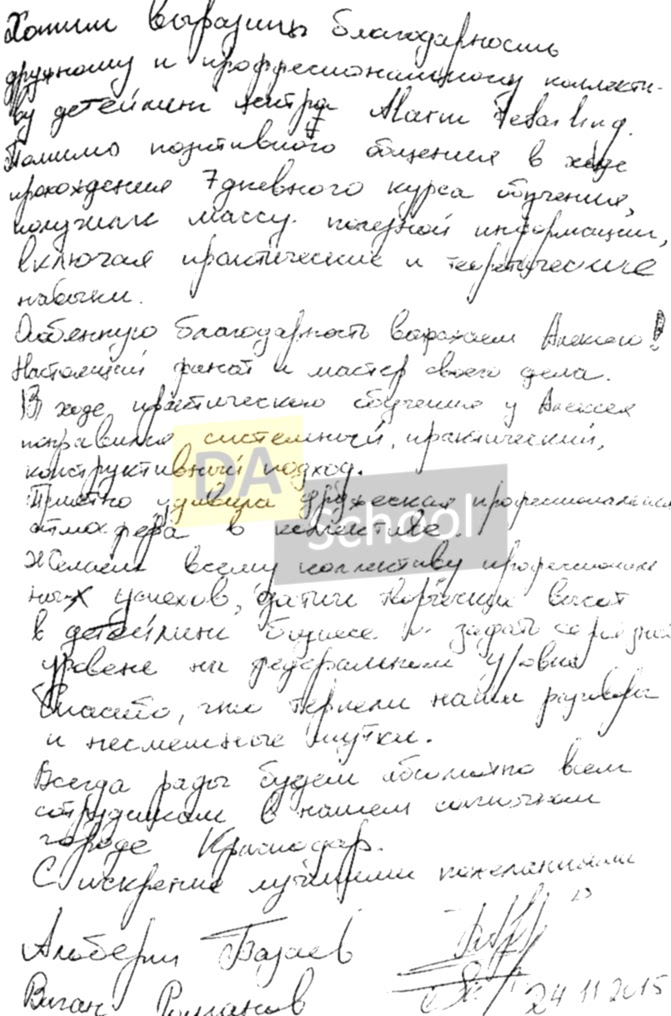 Хотим выразить благодарность
дружному и профессиональному коллекти-
ву детейлинг центра Alarm Detailing.
Помимо позитивного общения в ходе
прохождения 7дневного курса обучения,
получили массу полезной информации,
включая практические и теоретические
навыки.
Особенную благодарность выражаем Алексею!
Настоящий фанат и мастер своего дела.
В ходе практического обучения у Алексея
понравился системный, практический,
конструктивный подход.
DA
School
Приятно удивила дружеская профессиональная
атмосфера в коллективе.
Желаем всему коллективу профессиональ
ных успехов, достичь творческих высот
в детейлинг бизнесе и задать серьезный
уровень на федеральном уровне
Спасибо, что терпели наши разговоры
и несмешные шутки.
Всегда рады будем абсолютно всем
сотрудникам в нашем солнечном
городе Краснодар.
С искренне лучшими пожеланиями
Альберт Базаев
24 11 2015